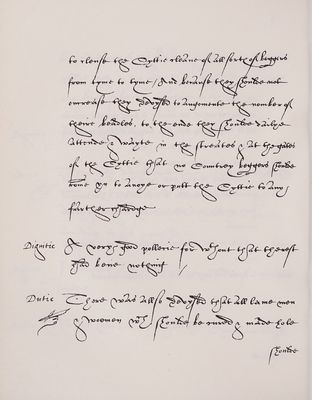 to clense the Cyttie cleane of all sorts of beggers
from tyme to tyme / And because they shoulde not
encrease they devysed to augmente the nomber of
theire beadles, to the ende they shoulde dailye
attende & wayte in the streates & at the gates
of the Cyttie that no Countrey beggers shoulde
come yn to anoye or putt the Cyttie to any
further chardge
Dignitie A verye good pollecie for without that the rest
had bene nothing /
Dutie There was allso devysed that all lame men
& woemen wch shoulde be cured & made hole
shoulde